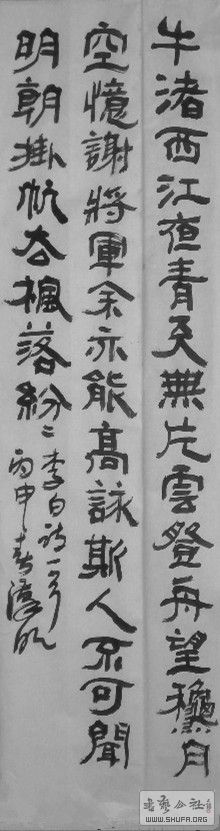 牛渚西江夜青天無片雲登舟望穐月
空憶謝將軍余亦能高詠斯人不可聞
明朝掛帆去楓落紛〻李白詩一首
丙申春
书艺公社
WWW.SHUFA.ORG